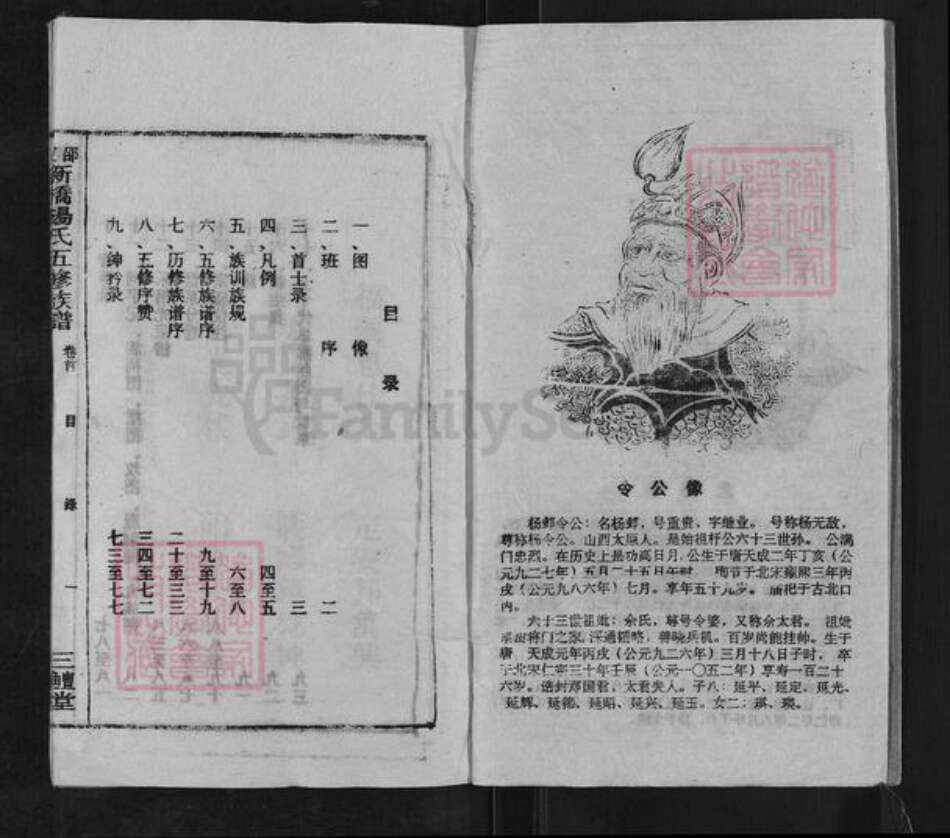 目录
一、图像
二、班序 二
三、首士录 三
四、凡例 四至五
五、族训族规 六至八
六、五修族谱序 九至十九
七、历修族谱序 二十至三三
八、王修序赞 三四至七二
九、绅衿录 七三至七七
新橋楊氏五修族譜 卷首 目錄 一 三鱣堂
令公像
杨邺令公：名杨邺，号重贵、字继业。号称杨无敌，
尊称杨令公。山西太原人。是始祖杼公六十三世孙。公满
门忠烈。在历史上是功高日月。公生于唐天成二年丁亥（公
元九二七年）五月二十五日午时。殉节于北宋雍熙三年丙
戌（公元九八六年）七月。享年五十九岁。庙祀于古北口
内。
六十三世祖妣：佘氏，尊号令婆，又称佘太君。祖妣
系出将门之家，深通韬略，善晓兵机。百岁尚能挂帅。生于
唐 天成元年丙戌（公元九二六年）三月十八日子时，卒
于北宋仁宗三十年壬辰（公元一〇五二年）享寿一百二十
六岁。诰封郑国君、太君夫人。子八：延平、延定、延光、
延辉、延德、延昭、延兴、延玉。女二：琪、瑛。
FamilySe